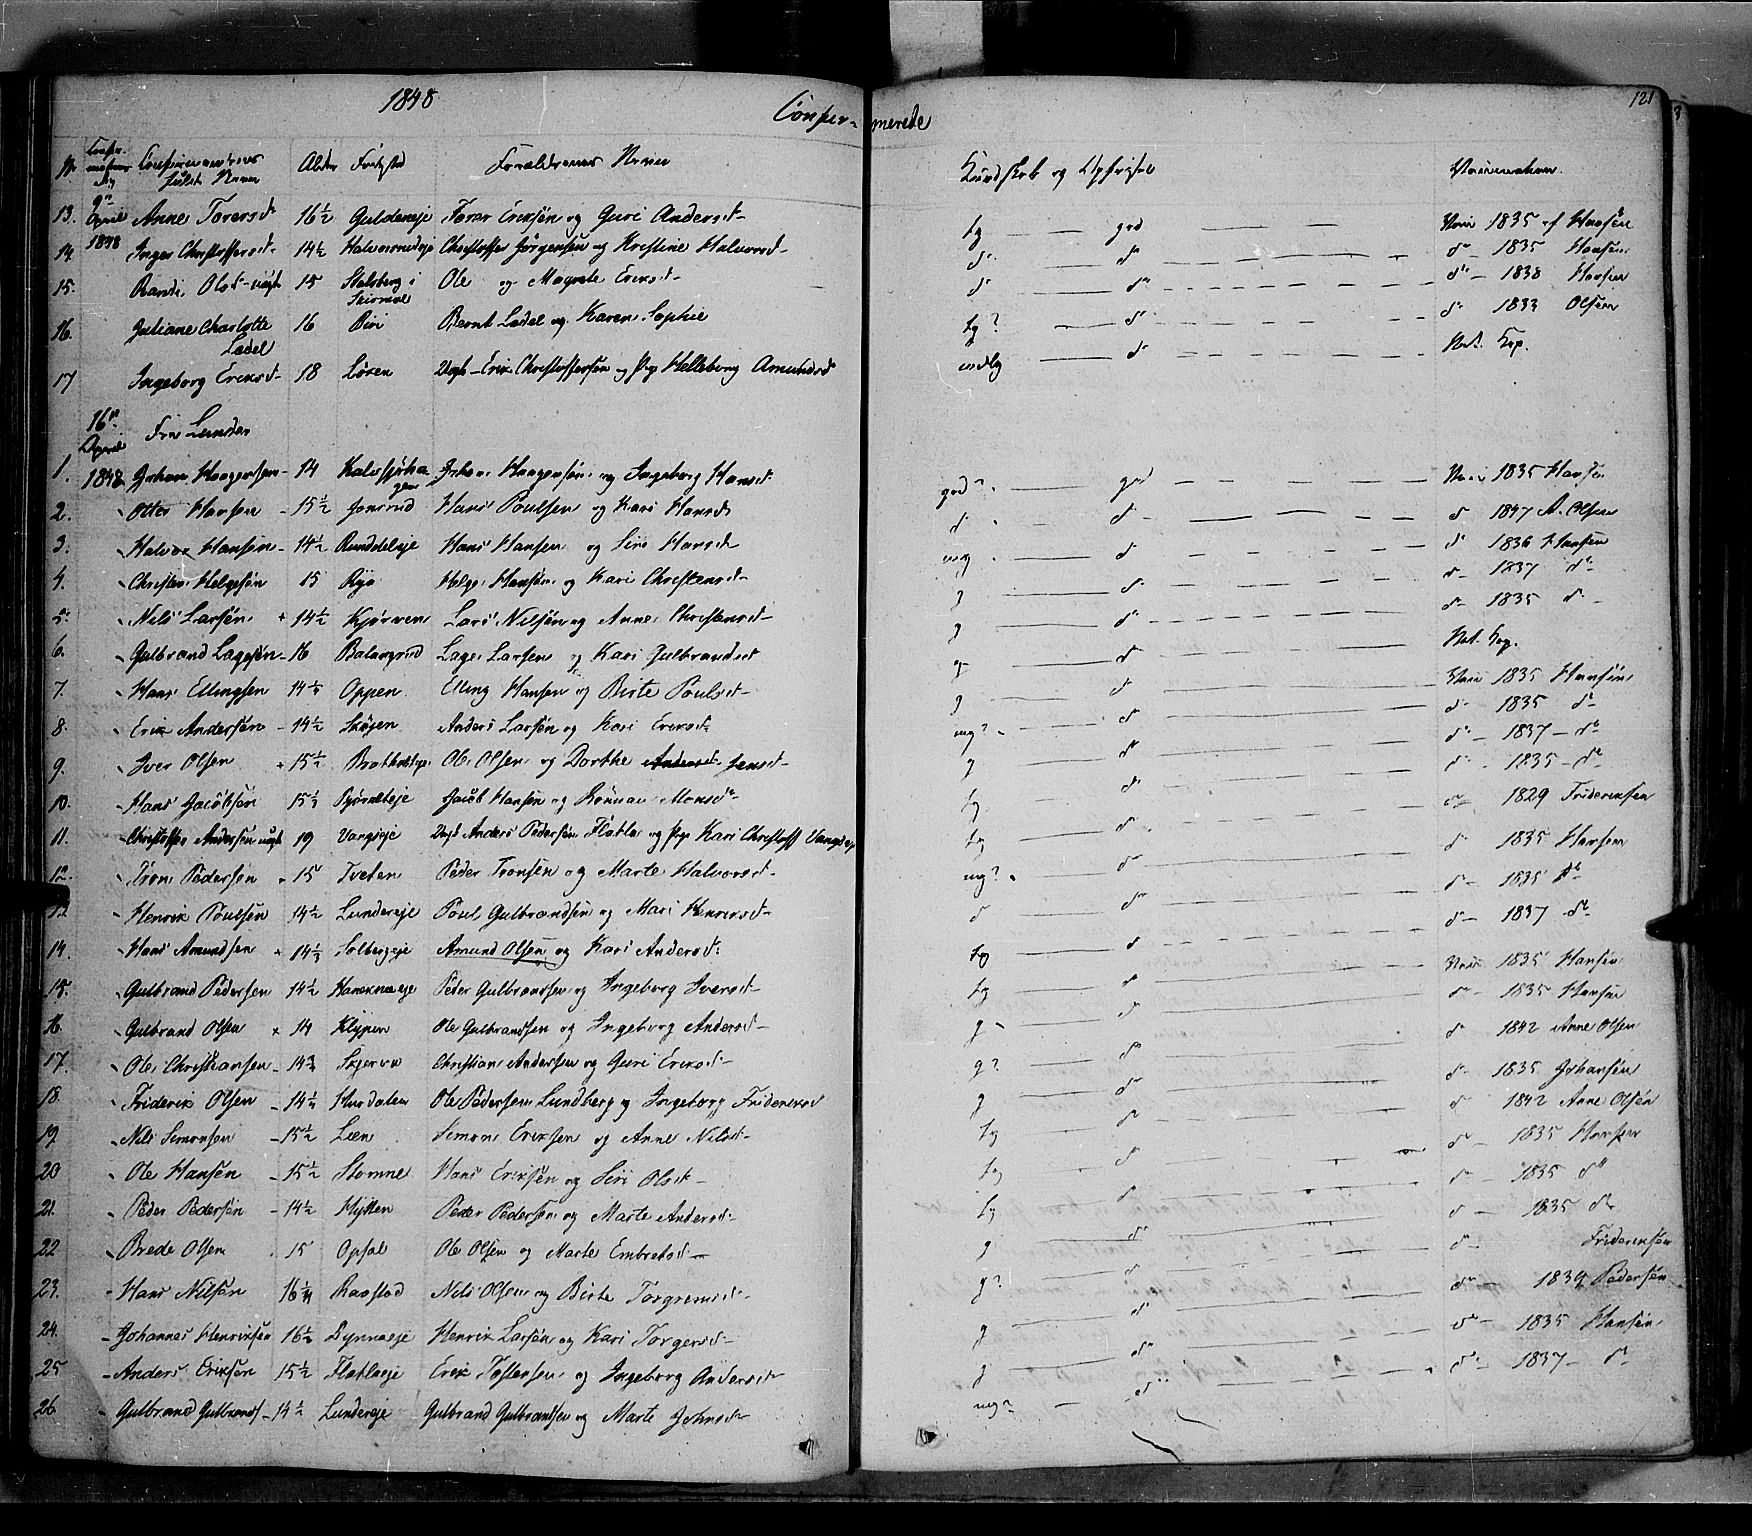 1848
Confir-
merede
121
No Confirmations Dag Confirmandens fulde Navn Alder Fødested Forældrenes Navne Kundskab og Opførsel Vaccination.
13. 9de April 1848 Anne Torersdr 16½ Guldeneje Torer Eriksøn og Guri Andersd- tg god Vacc 1835 af Hansen
14. Inger Christoffersd- 14½ Halvorsrudeje Christoffer Jørgensen og Kristine Halvorsd- do do do 1835 Hansen
15. Randi Olsd- uægte 15 Ole og Magrete Eriksd- do do do 1838 Hansen
16. Juliane Charlotte Ladel 16 Biri Bernt Ladel og Karen Sophie tg? do do 1833 Olsen
17 Ingeborg Eriksd- 18 Løken Erik Christoffersøn og Pige Helleborg Amundsd mdlg do Nat. Kop.
16de April 1848 Fra Lunder
1. Johan Haagensen 14 Johan Haagensøn og Ingeborg Hansd: god?. god Vacc 1835 Hansen
2. Otter Hansen 15½ Jonsrud Hans Poulsen og Kari Hansd do do do 1847 A. Olsen
3. Halvor Hansen 14½ Hans Hansen og Siri Hansd mg do do 1836 Hansen
4. Christen Helgesøn 15 Rya Helge Hansøn og Kari Christensd- g do do 1837 do
5. Nils Larsøn + 14½ Kjørven Lars Nilsøn og Anne Christensd- g do do 1835 do
6. Gulbrand Lagesøn 16 Lage Larsen og Kari Gulbrandsd g do Nat. Kop.
7. Hans Ellingsen 14½ Oppen Elling Hansen og Birte Poulsd- g do Vacc 1835 Hansen
8. Erik Andersøn 14½ Skøyen Anders Larsøn og Kari Eriksd- mg? do do 1835 do
9. Iver Olsen + 15½ Ole Olsen og Dorthe Andersd Jensd- g do do 1837 do
10. Hans Jacobsøn 15½ Bjørneleje Jacob Hansøn og Rønnau Monsdr tg do do 1835 do
11. Christoffer Andersøn uægt 19 Vangseje Anders Pedersøn Flatla og pige Kari Christoff Vangseje tg do do 1829 Frideriksen
12. Tron Pedersøn 15 Tveten Peder Tronsøn og Marte Halvorsd- mg? do do 1835 Hansen
13. Henrik Poulsøn 14½ Lundereje Poul Gulbrandsøn og Mari Henriksd- do do do 1835 do
14. Hans Amundsen + 14½ Solbergeje Amund Olsen og Kari Andersd: tg do do 1837 do
15. Gulbrand Pedersen 14½ Peder Gulbrandsen og Ingeborg Iversd- tg do Vacc 1835 Hansen
16. Gulbrand Olsen x 14 Klypen Ole Gulbrandsen og Ingeborg Andersd- g do do 1835 Hansen
17. Ole Christiansen 14¾ Skjerva Christian Andersen og Guri Eriksd- g? do do 1842 Anne Olsen
18. Friderik Olsen 14½ Hurdalen Ole Pedersen Lundberg og Ingeborg Frideriksd g do do 1835 Johansen
19. Nils Simonsen 15½ Leen Simon Eriksen og Anne Nilsd- tg do do 1842 Anne Olsen
20 Ole Hansen 15½ Stomne Hans Eriksøn og Siri Olsd- tg do do 1835 Hansen
21. Peder Pedersøn 14½ Hytten Peder Pedersen og Marte Andersd- tg do do 1835 do
22 Brede Olsen 15 Opsal Ole Olsen og Marte Embretsd- g do do 1835 do
23. Hans Nilsøn 16¼ Raastad Nils Olsen og Birte Torgrimsd- g? do do Frideriksen
24. Johannes Henriksen 16½ Henrik Larsøn og Kari Torgersd- g do do 1839 Pedersen
25 Anders Eriksøn 15½ Flatlaeje Erik Tostensen og Ingeborg Andersd- g do do 1835 Hansen
26 Gulbrand Gulbrands 14½ Lundereje Gulbrand Gulbrandsen og Marte Johnsdr mg? do do 1837 do